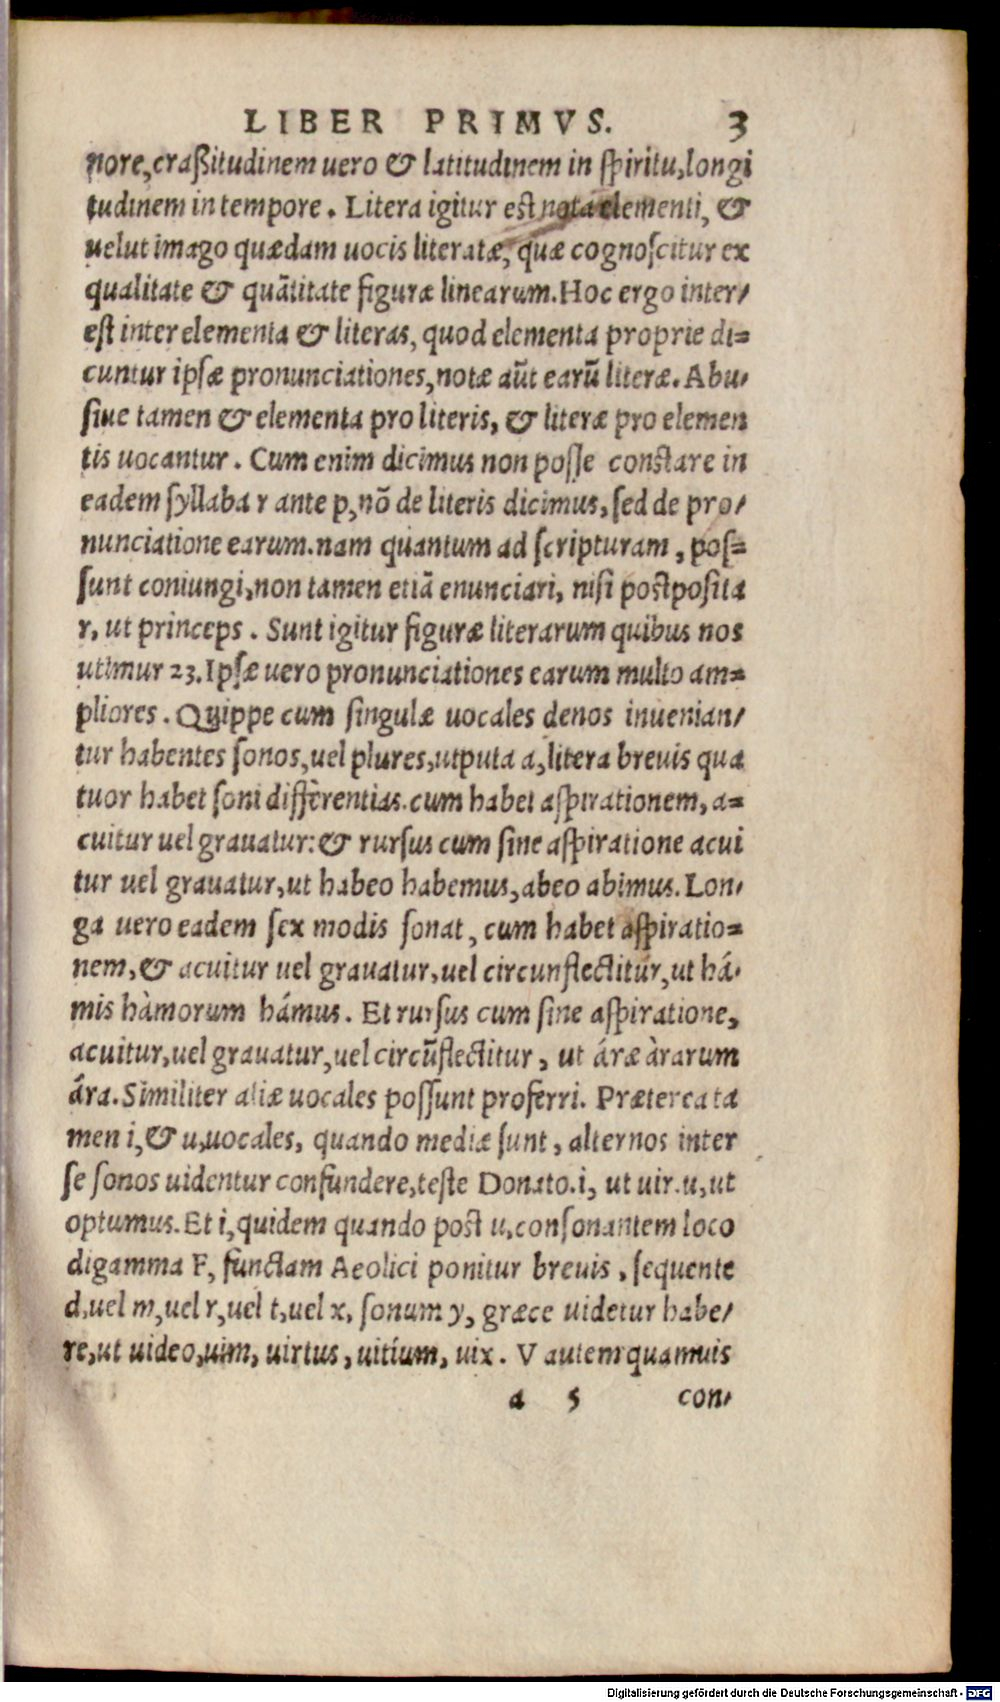 LIBER PRIMVS. 3
nore, craßitudinem uero & latitudinem in ſpiritu, longi
tudinem in tempore. Litera igitur eſt nota elementi, &
uelut imago quædam uocis literatæ, quæ cognoſcitur ex
qualitate & quãtitate figuræ linearum. Hoc ergo inter-
eſt inter elementa & literas, quod elementa proprie di-
cuntur ipſæ pronunciationes, notæ aũt earũ literæ. Abu-
ſiue tamen & elementa pro literis, & literæ pro elemen
tis uocantur. Cum enim dicimus non poſſe conſtare in
eadem ſyllaba r ante p, nõ de literis dicimus, ſed de pro-
nunciatione earum. nam quantum ad ſcripturam, poſ-
ſunt coniungi, non tamen etiã enunciari, niſi poſtpoſita
r, ut princeps. Sunt igitur figuræ literarum quibus nos
utimur 23. Ipſæ uero pronunciationes earum multo am-
pliores. Quippe cum ſingulæ uocales denos inuenian-
tur habentes ſonos, uel plures, utputa a, litera breuis qua
tuor habet ſoni differentias. cum habet aſpirationem, a-
cuitur uel grauatur: & rurſus cum ſine aſpiratione acui
tur uel grauatur, ut habeo habemus, abeo abimus. Lon-
ga uero eadem ſex modis ſonat, cum habet aſpiratio-
nem, & acuitur uel grauatur, uel circunflectitur, ut há-
mis hàmorum hámus. Et rurſus cum ſine aſpiratione,
acuitur, uel grauatur, uel circũflectitur, ut áræ àrarum
âra. Similiter aliæ uocales poſſunt proferri. Præterea ta
men i, & u, uocales, quando mediæ ſunt, alternos inter
ſe ſonos uidentur confundere, teſte Donato. i, ut uir. u, ut
optumus. Et i, quidem quando poſt u, conſonantem loco
digamma F, functam Aeolici ponitur breuis, ſequente
d, uel m, uel r, uel t, uel x, ſonum y, græce uidetur habe-
re, ut uideo, uim, uirtus, uitium, uix. V autem quamuis
a 5 con-
Digitalisierung gefördert durch die Deutsche Forschungsgemeinschaft - DFG